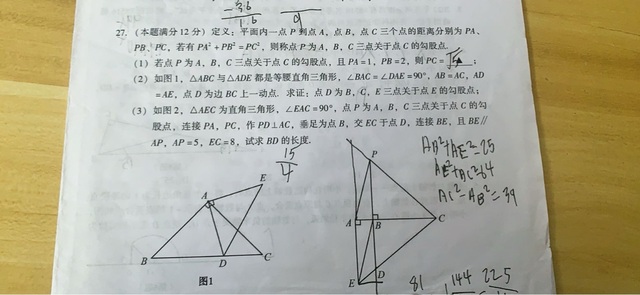 3.6
1.6
9
27.(本题满分12分)定义:平面内一点P到点A,点B,点C三个点的距离分别为PA,
PB,PC,若有PA²+PB²=PC²,则称点P为A,B,C三点关于点C的勾股点.
(1)若点P为A,B,C三点关于点C的勾股点,且PA=1,PB=2,则PC=√5;
(2)如图1,△ABC与△ADE都是等腰直角三角形,∠BAC=∠DAE=90°,AB=AC,AD
=AE,点D为边BC上一动点.求证:点D为B,C,E三点关于点E的勾股点;
(3)如图2,△AEC为直角三角形,∠EAC=90°,点P为A,B,C三点关于点C的勾
股点,连接PA,PC,作PD⊥AC,垂足为点B,交EC于点D,连接BE,且BE∥
AP,AP=5,EC=8,试求BD的长度.
15
4
AB²+AE²=25
AE²+AC²=64
AC²-AB²=39
A
E
B
D
C
图1
P
A
B
C
E
D
81
144
225